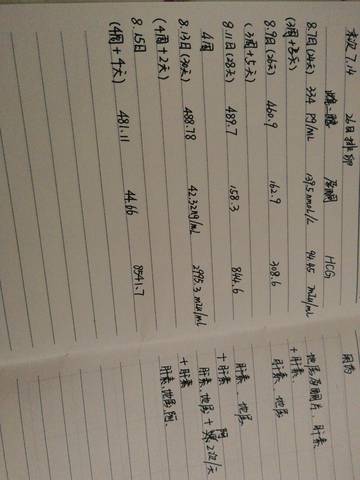 末次 7.14  26日排卵
雌二醇  孕酮  HCG  用药
8.7日(24天)  334 pg/mL  139.5 nmol/L  94.45 mIU/mL  地屈孕酮片、肝素
(3周+3天)  + 肝素
8.9日(26天)  460.9  162.9  308.6  肝素、地屈
8.11日(28天)  489.7  158.3  844.6  肝素、地屈
(3周+5天)  + 肝素
4周  肝素、地屈 + 2次/天
8.13日(30天)  488.78  42.32 ng/mL  2995.3 mIU/mL  + 肝素
(4周+2天)
8.15日  481.11  44.66  8541.7  肝素、地屈、
(4周+4天)